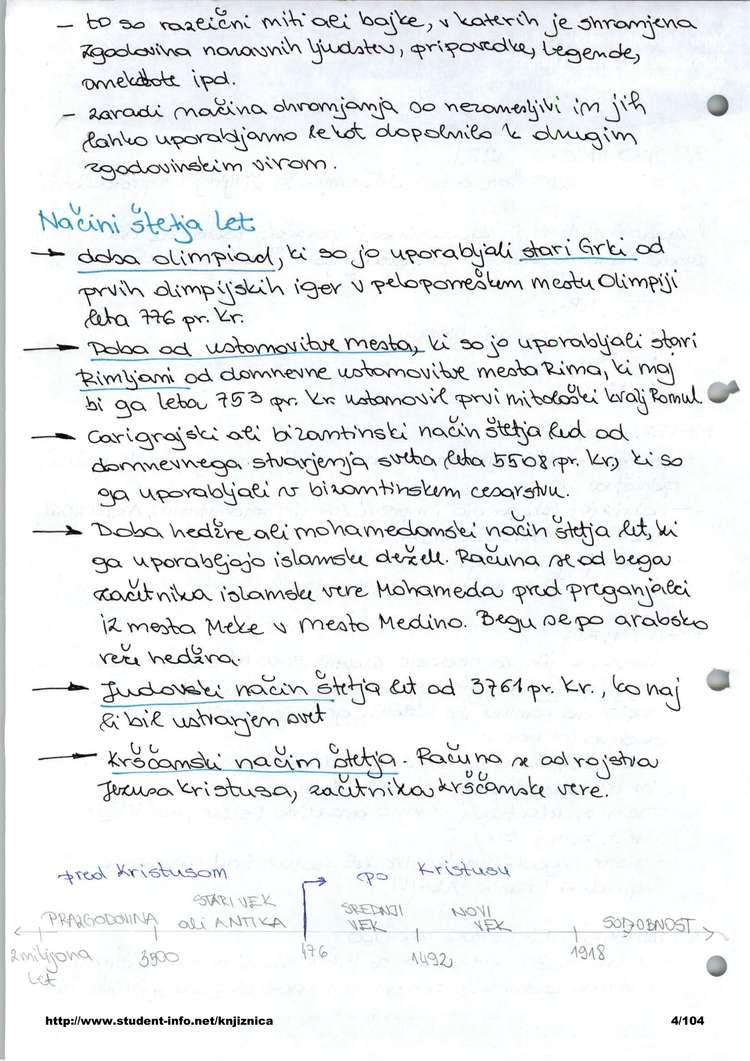 - to so različni miti ali bajke, v katerih je shranjena
zgodovina naravnih ljudstev, pripovedke, legende,
anekdote ipd.
- zaradi načina ohranjanja so nezanesljivi in jih
lahko uporabljamo le kot dopolnilo k drugim
zgodovinskim virom.
Načini štetja let
→ doba olimpiad, ki so jo uporabljali stari Grki od
prvih olimpijskih iger v peloponeškem mestu Olimpiji
leta 776 pr. Kr.
→ Doba od ustanovitve mesta, ki so jo uporabljali stari
Rimljani od domnevne ustanovitve mesta Rima, ki naj
bi ga leta 753 pr. Kr. ustanovil prvi mitološki kralj Romul.
→ Carigrajski ali bizantinski način štetja let od
domnevnega stvarjenja sveta leta 5508 pr. Kr., ki so
ga uporabljali v bizantinskem cesarstvu.
→ Doba hedžre ali mohamedanski način štetja let, ki
ga uporabljajo islamske dežele. Računa se od bega
začetnika islamske vere Mohameda pred preganjalci
iz mesta Meke v mesto Medino. Begu se po arabsko
reče hedžra.
→ Judovski način štetja let od 3761 pr. Kr., ko naj
bi bil ustvarjen svet
→ Krščanski način štetja. Računa se od rojstva
Jezusa Kristusa, začetnika krščanske vere.
pred Kristusom po Kristusu
PRAZGODOVINA STARI VEK ali ANTIKA SREDNJI VEK NOVI VEK SODOBNOST
2 milijona let 3500 476 1492 1918
http://www.student-info.net/knjiznica 4/104